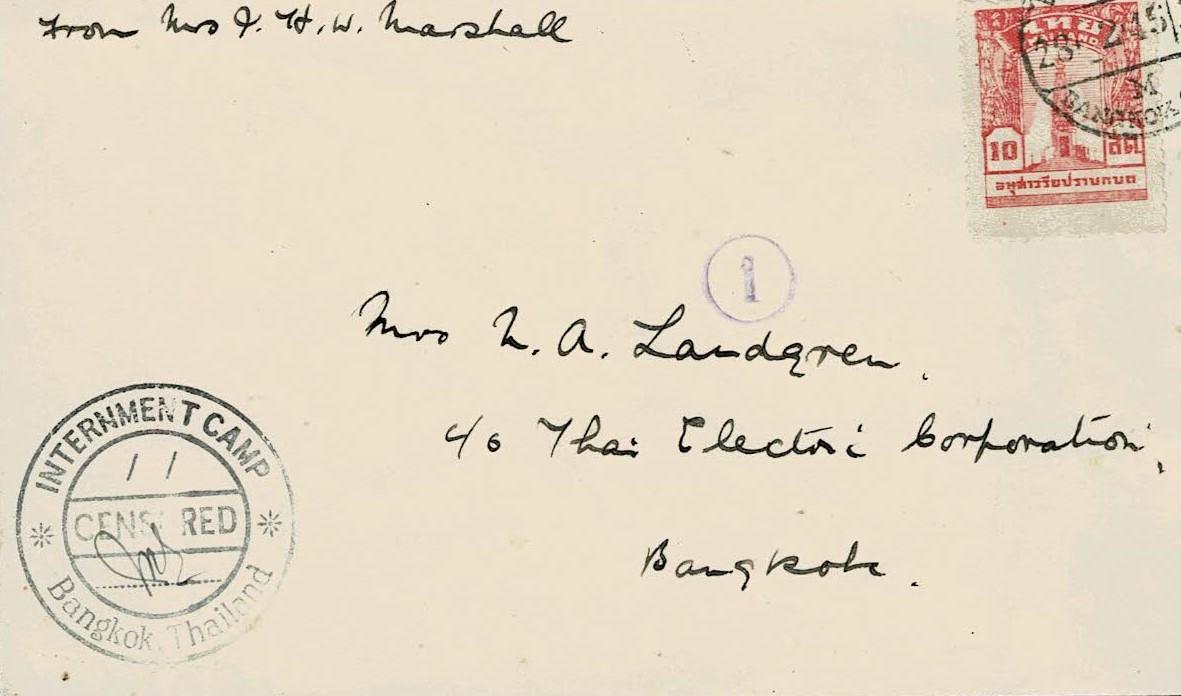 From Mrs J. H. W. Marshall
ไทย
THAILAND
28 2 45
BANGKOK
10 สต
อนุสาวรีย์ปราบกบถ
1
Mrs N. A. Landgren,
c/o Thai Electric Corporation,
Bangkok.
INTERNMENT CAMP
/ /
CENSORED
Bangkok, Thailand